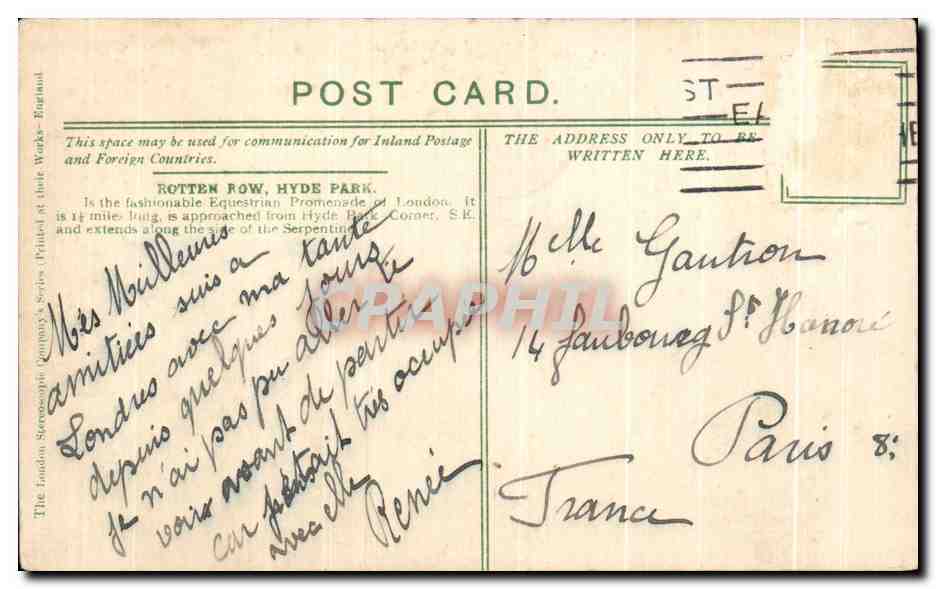 POST CARD.
This space may be used for communication for Inland Postage
and Foreign Countries.
THE ADDRESS ONLY TO BE
WRITTEN HERE.
ROTTEN ROW, HYDE PARK.
Is the fashionable Equestrian Promenade of London. It
is 1½ miles long, is approached from Hyde Park Corner, S.E.
and extends along the side of the Serpentine
The London Stereoscopic Company's Series (Printed at their Works—England
Mes Meilleures
amitiées suis a
Londres avec ma tante
depuis quelques jours.
je n'ai pas pu aller te
voir avant de partir
car j'étais très occupé
avec elle
Renée
Melle Gautron
14 faubourg St Honoré
Paris 8:
France
ST
CRAPHIL